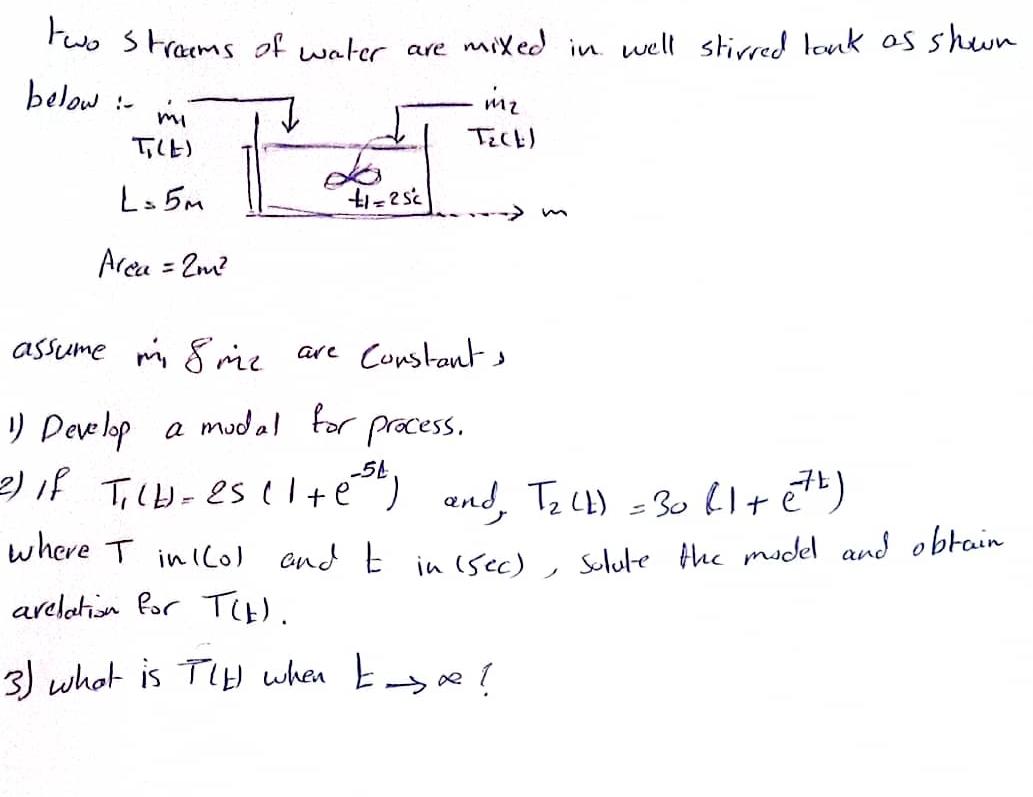 two straems of water are mixed in well stirred tank as shwn
below :-
ṁ1 ṁ2
T1(t) T2(t)
L = 5m t1 = 25°c m
Area = 2m²
assume ṁ1 & ṁ2 are Constant,
1) Develop a modal for process.
2) if T1(t) = 25 (1 + e^-5t) and, T2(t) = 30 (1 + e^-7t)
where T in (C°) and t in (sec), solute the model and obtain
arelation for T(t).
3) what is T(t) when t → ∞ ?